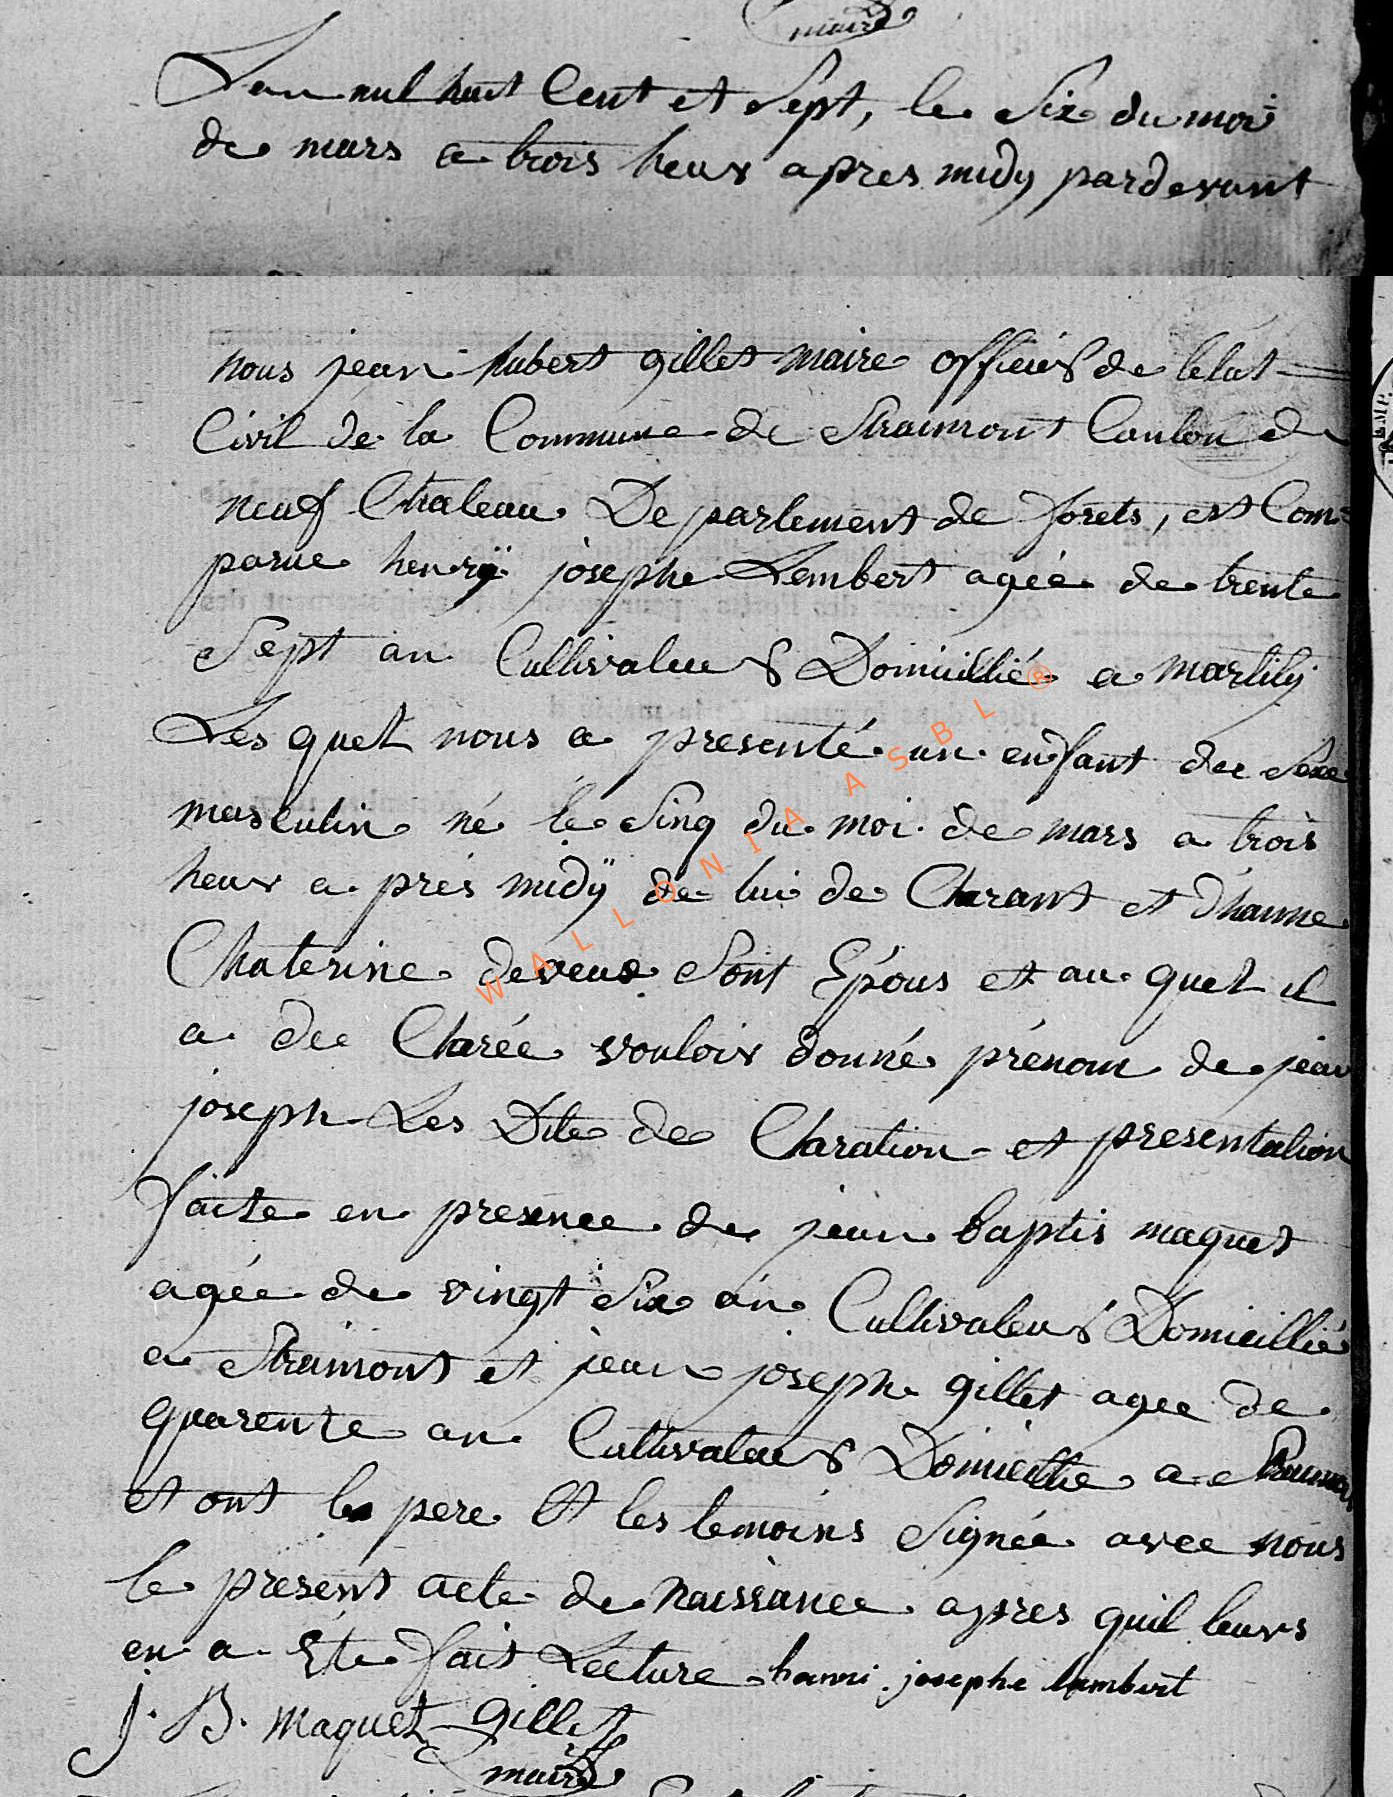 maire
Lan mil huit Cent et Sept, le Six du moi
de mars a trois heur apres midÿ pardevant
nous jean hubert gillet maire officier de letat
Civil de la Commune de Straimont Canton de
neuf Chateau Departement de forets, est Com=
parue henrÿ josephe Lambert agée de trente
Sept an Cultivateur Domicillié a martilÿ
Les quel nous a presenté un enfant de Sexe
masculin né le Sinq du moi de mars a trois
heur a pres midÿ de lui de Clarant et d'hanne
Chaterine deveux Sont Épous et au quel il
a dee Clarée vouloir donné prénom de jean
joseph Les Dite de Claration et presentation
faite en presence de jean baptis maquet
agée de vingt Six an Cultivateur Domicillié
a Straimont et jean joseph gillet agee de
quarente an Cultivateur Domicillie a Straimont
et ont le pere Et les temoins Signée avec nous
le present acte de naissance apres quil leurs
en a Ete fait Lecture hanri josephe lambert
J. B. maquet Gillet
maire
WALLONIA ASBL ®